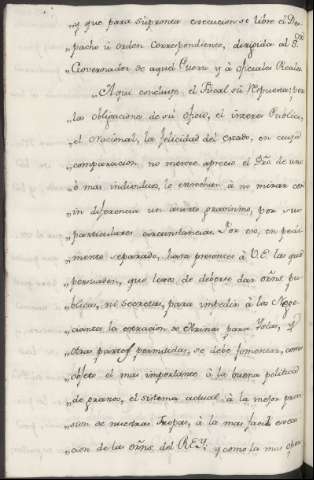 „y que para su pronta execucion se libre el Des-
„pacho ú orden correspondiente, dirigida al S.or
„Governador de aquel Puerto y á oficiales Reales.
„Aqui concluye el Fiscal su Respuesta; pero
„las obligaciones de su oficio, el interes Publico,
„el Nacional, la felicidad del estado, en cuya
„comparacion no merece aprecio el de uno
„ó mas individuos, le estrechan á no mirar con
„indiferencia un asunto gravisimo, por sus
„particulares circunstancias. Por eso, en pedi-
„mento separado, hara presentes á V.E. las que
„persuaden, que lexos de deberse dar orns. pu-
„blicas, ni secretas, para impedir á los Nego-
„ciantes la extraccion de Harinas para Islas, y
„otras partes permitidas, se debe fomentar, como
„objeto el mas importante á la buena politica
„de granos, el sistema actual á la mejor provi-
„sion de nuestras Tropas, á la mas facil execu-
„cion de las orns. del REY. y como la mas